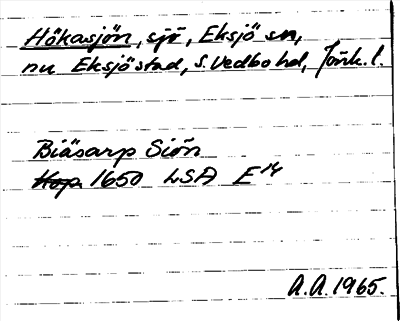 Hökasjön, sjö, Eksjö sn,
nu Eksjö stad, S. Vedbo hd, Jönk. l.
Biäsarp Siön
1650 LSA E14
A.A. 1965.